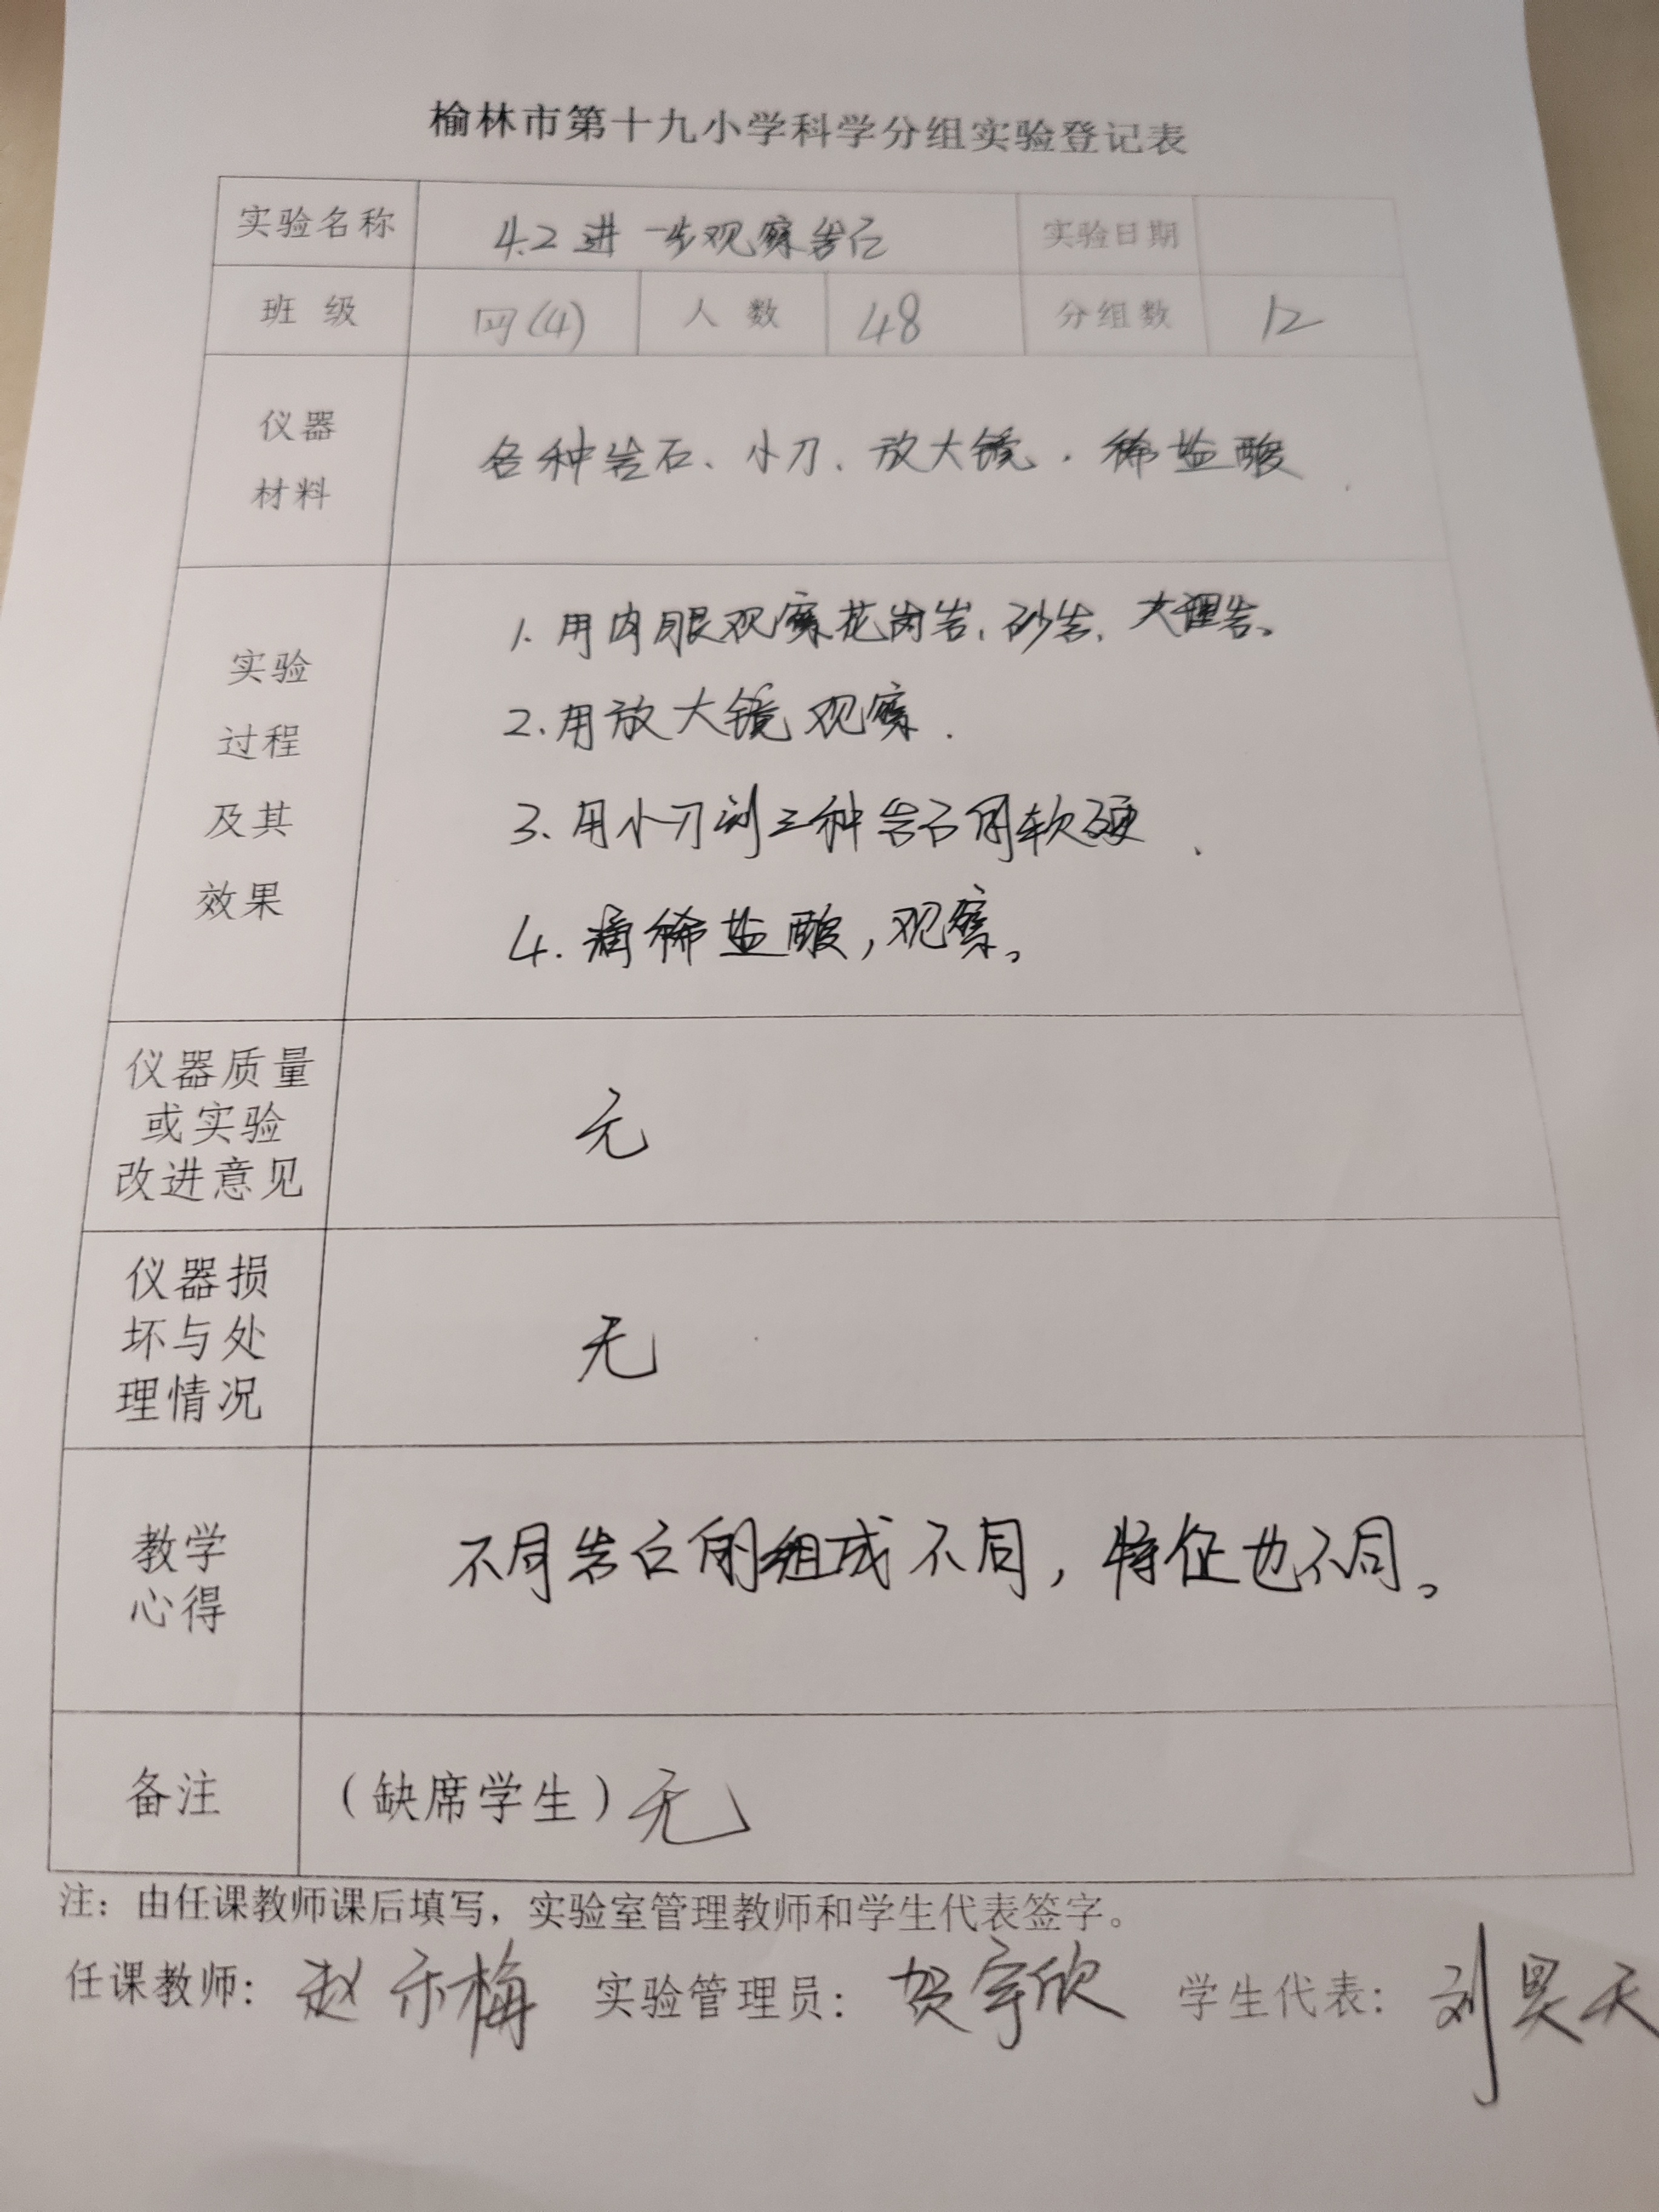 榆林市第十九小学科学分组实验登记表
实验名称 4.2 进一步观察岩石 实验日期
班 级 四(4) 人 数 48 分组数 12
仪器
材料
各种岩石、小刀、放大镜、稀盐酸
实验
过程
及其
效果
1. 用肉眼观察花岗岩、砂岩、大理岩。
2. 用放大镜观察.
3. 用小刀刻三种岩石的软硬.
4. 滴稀盐酸,观察。
仪器质量
或实验
改进意见
无
仪器损
坏与处
理情况
无
教学
心得
不同岩石的组成不同,特征也不同。
备注 (缺席学生) 无
注：由任课教师课后填写，实验室管理教师和学生代表签字。
任课教师: 赵 梅 实验管理员: 贺宇欣 学生代表: 刘昊天